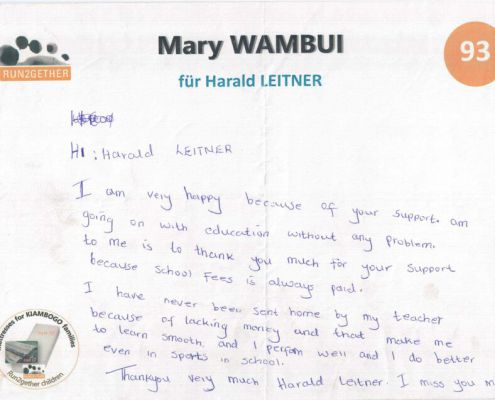 Mary WAMBUI
für Harald LEITNER
93
RUN2GETHER
Hi : Harald LEITNER
I am very happy because of your support. am
going on with education without any problem.
to me is to thank you much for your support
because school fees is always paid.
I have never been sent home by my teacher
because of lacking money and that make me
to learn smooth. and I perform well and I do better
even in sports in school.
Thankyou very much Harald Leitner. I miss you
for KIAMBOGO families
Run2gether children